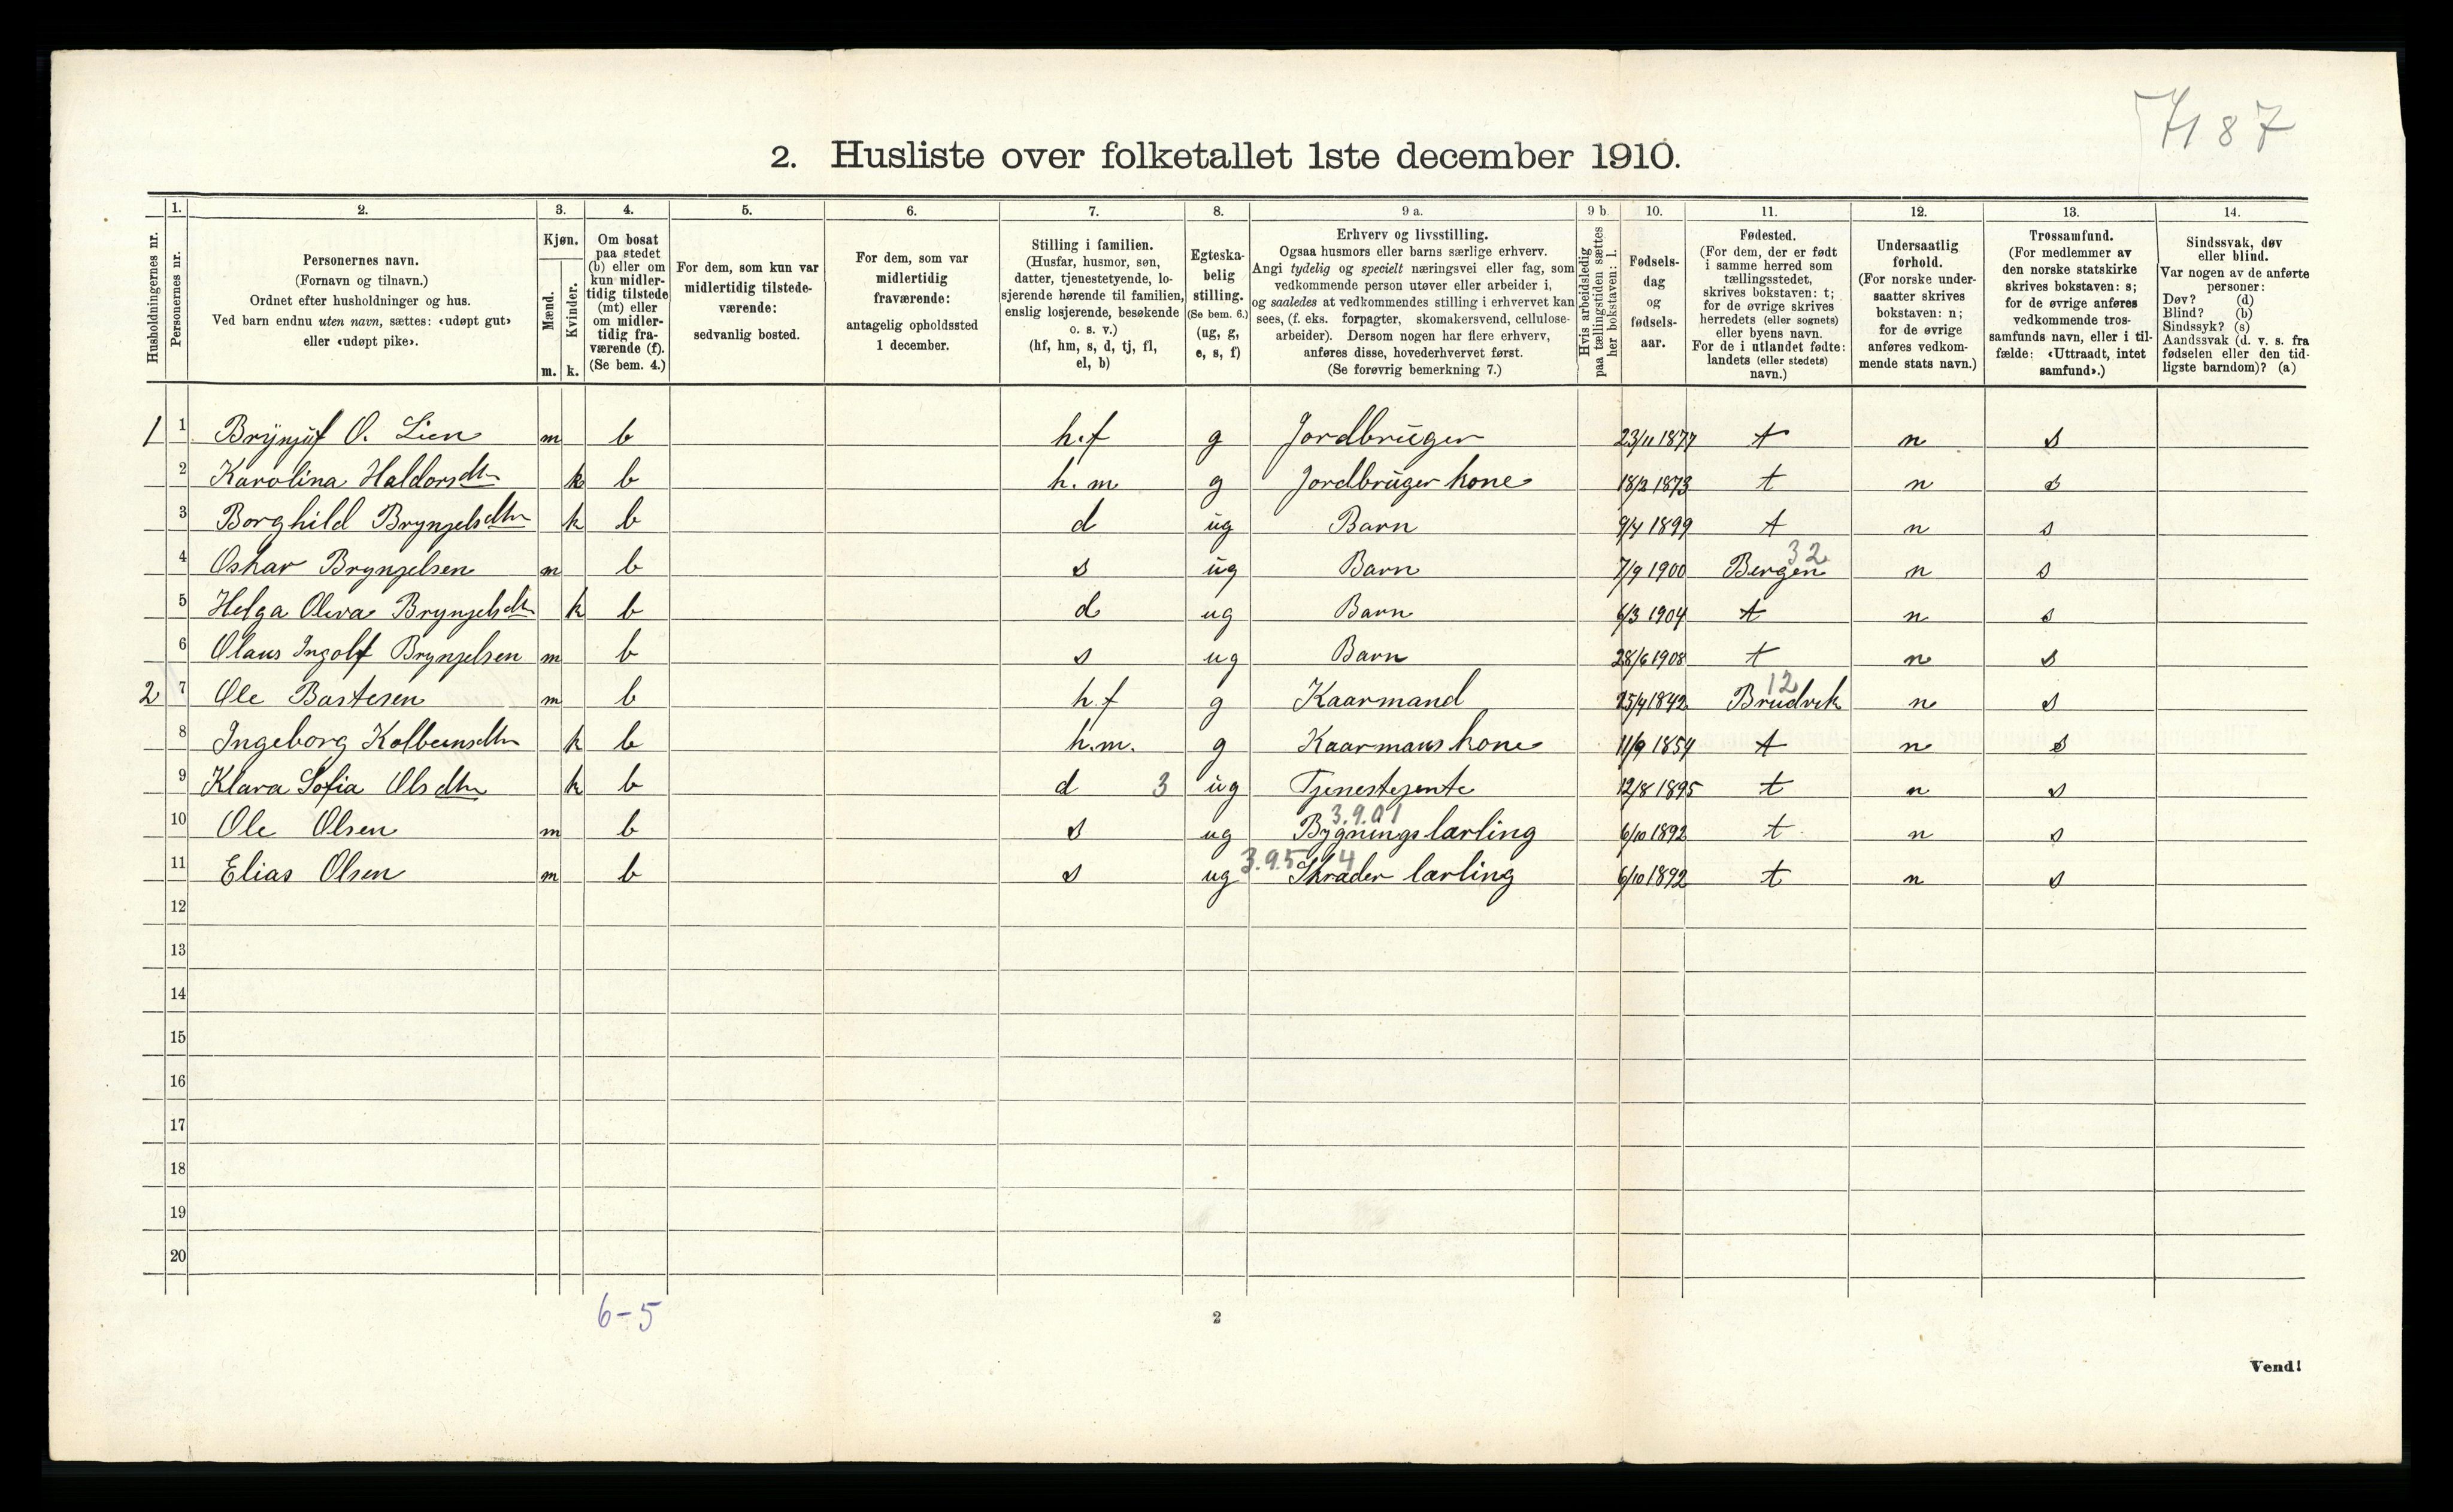 7187
2. Husliste over folketallet 1ste december 1910.
1. 2. 3. 4. 5. 6. 7. 8. 9 a. 9 b. 10. 11. 12. 13. 14.
Husholdningernes nr.
Personernes nr.
Personernes navn.
(Fornavn og tilnavn.)
Ordnet efter husholdninger og hus.
Ved barn endnu uten navn, sættes: «udøpt gut»
eller «udøpt pike».
Kjøn.
Mænd.
Kvinder.
m. k.
Om bosat
paa stedet
(b) eller om
kun midler-
tidig tilstede
(mt) eller
om midler-
tidig fra-
værende (f).
(Se bem. 4.)
For dem, som kun var
midlertidig tilstede-
værende:
sedvanlig bosted.
For dem, som var
midlertidig
fraværende:
antagelig opholdssted
1 december.
Stilling i familien.
(Husfar, husmor, søn,
datter, tjenestetyende, lo-
sjerende hørende til familien,
enslig losjerende, besøkende
o. s. v.)
(hf, hm, s, d, tj, fl,
el, b)
Egteska-
belig
stilling.
(Se bem. 6.)
(ug, g,
e, s, f)
Erhverv og livsstilling.
Ogsaa husmors eller barns særlige erhverv.
Angi tydelig og specielt næringsvei eller fag, som
vedkommende person utøver eller arbeider i,
og saaledes at vedkommendes stilling i erhvervet kan
sees, (f. eks. forpagter, skomakersvend, cellulose-
arbeider). Dersom nogen har flere erhverv,
anføres disse, hovederhvervet først.
(Se forøvrig bemerkning 7.)
Hvis arbeidsledig
paa tællingstiden sættes
her bokstaven: l.
Fødsels-
dag
og
fødsels-
aar.
Fødested.
(For dem, der er født
i samme herred som
tællingsstedet,
skrives bokstaven: t;
for de øvrige skrives
herredets (eller sognets)
eller byens navn.
For de i utlandet fødte:
landets (eller stedets)
navn.)
Undersaatlig
forhold.
(For norske under-
saatter skrives
bokstaven: n;
for de øvrige
anføres vedkom-
mende stats navn.)
Trossamfund.
(For medlemmer av
den norske statskirke
skrives bokstaven: s;
for de øvrige anføres
vedkommende tros-
samfunds navn, eller i til-
fælde: «Uttraadt, intet
samfund».)
Sindssvak, døv
eller blind.
Var nogen av de anførte
personer:
Døv? (d)
Blind? (b)
Sindssyk? (s)
Aandssvak (d. v. s. fra
fødselen eller den tid-
ligste barndom)? (a)
1 1 O. Lien m b h.f g Jordbruger 23/11 1877 t n s
2 Karolina Haldorsdtr k b h.m g Jordbruger kone 18/2 1873 t n s
3 Borghild Brynjelsdtr k b d ug Barn 9/4 1899 t n s
32
4 Oskar Brynjelsen m b s ug Barn 7/9 1900 Bergen n s
5 Helga Oliva Brynjelsdtr k b d ug Barn 6/3 1904 t n s
6 Olaus Ingolf Brynjelsen m b s ug Barn 28/6 1908 t n s
12
2 7 Ole Bastesen m b h.f g Kaarmand 25/4 1842 Brudvik n s
8 Ingeborg Kolbeinsdtr k b h.m. g Kaarmans kone 11/9 1854 t n s
9 Klara Sofia Olsdtr k b d 3 ug Tjenestejente 12/8 1895 t n s
3.9.01
10 Ole Olsen m b s ug Bygnings lærling 6/10 1892 t n s
3.9.5 14
11 Elias Olsen m b s ug Skræder lærling 6/10 1892 t n s
12
13
14
15
16
17
18
19
20
6-5
2
Vend!